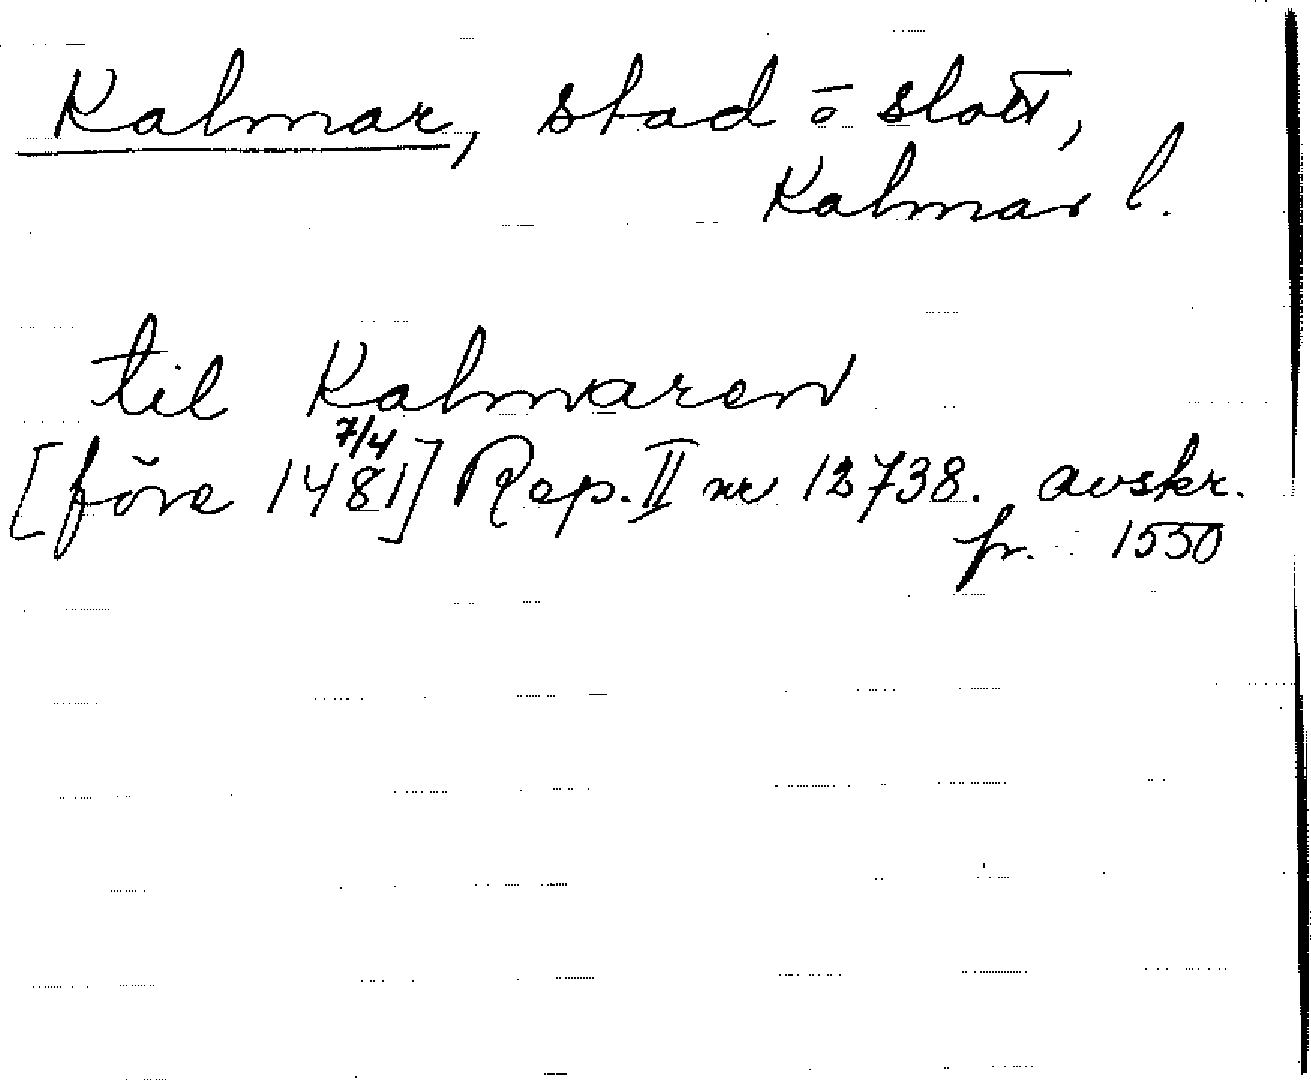 Kalmar, stad o slott,
Kalmar l.
til Kalmaren
7/4
[före 1481] Rep. II nr 12738. avskr.
fr. 1550